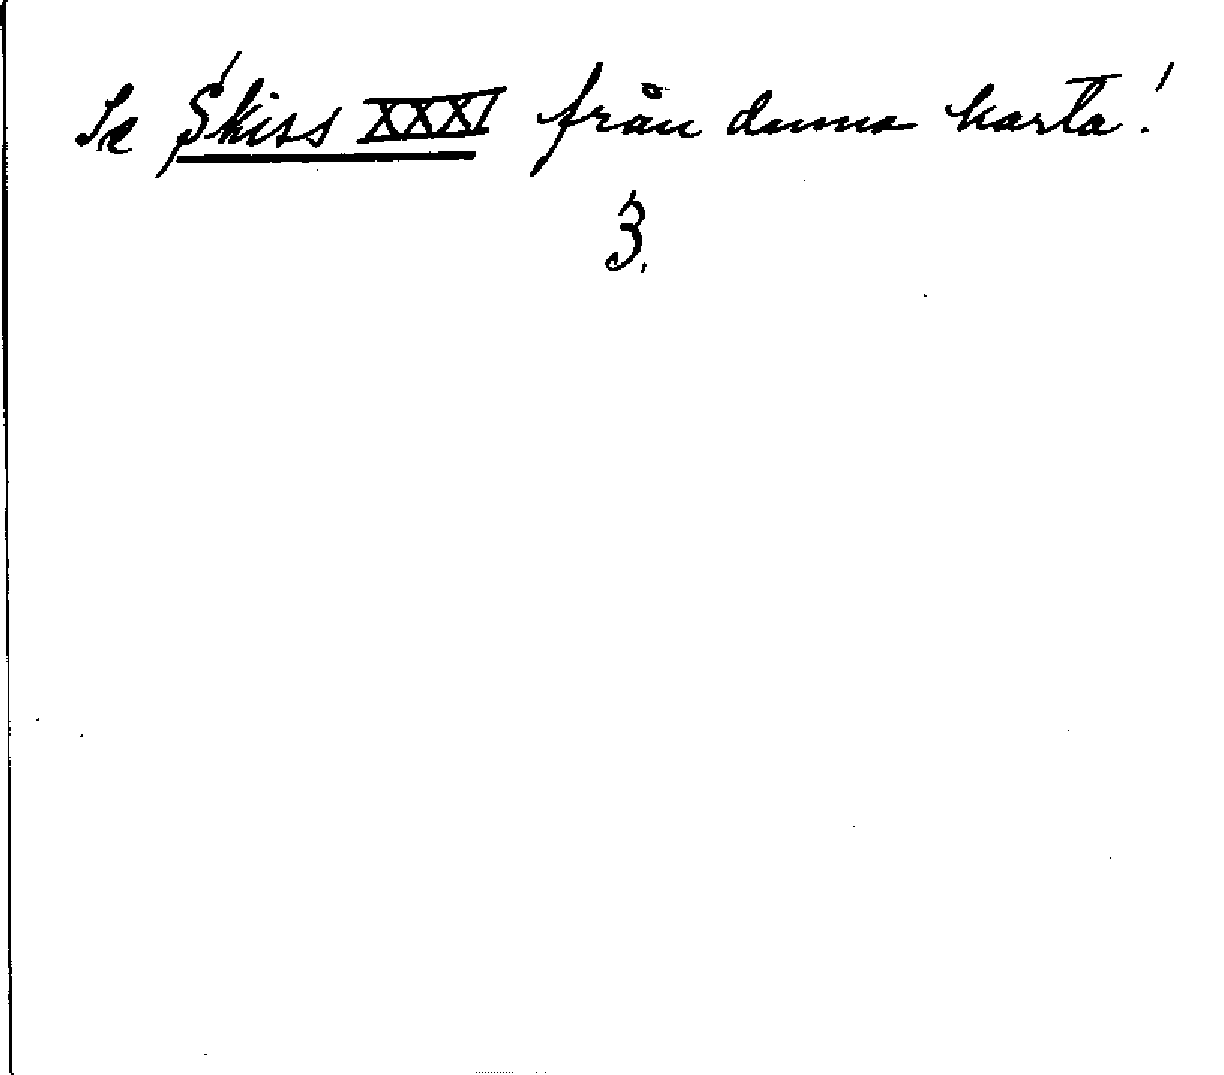 Se Skiss XXXI från denna karta!
3.